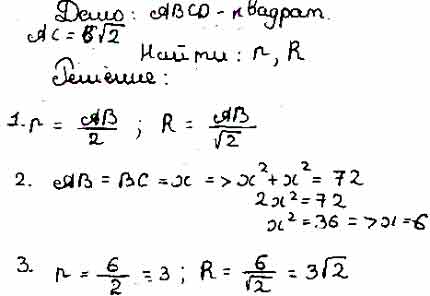 Дано: ABCD - квадрат.
AC = 6√2
Найти: r, R
Решение:
1. r = AB/2 ; R = AB/√2
2. AB = BC = x => x² + x² = 72
2x² = 72
x² = 36 => x = 6
3. r = 6/2 = 3 ; R = 6/√2 = 3√2